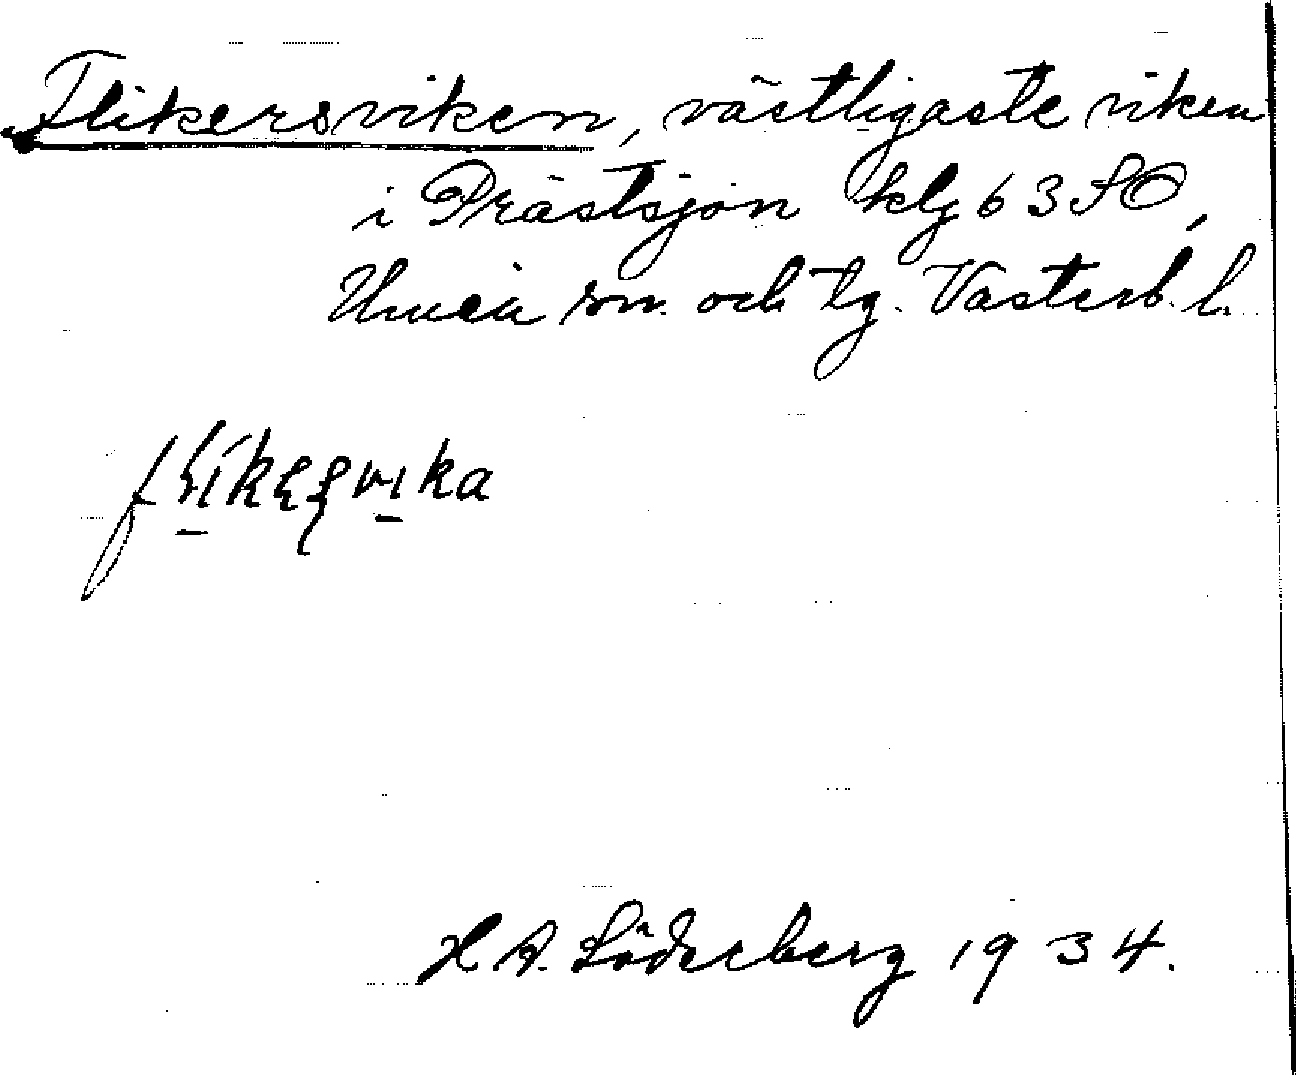 Flikersviken, västligaste viken
i Prästsjön klg 63 SO,
Umeå sn. och tg. Västerb. l.
H A. Söderberg 1934.